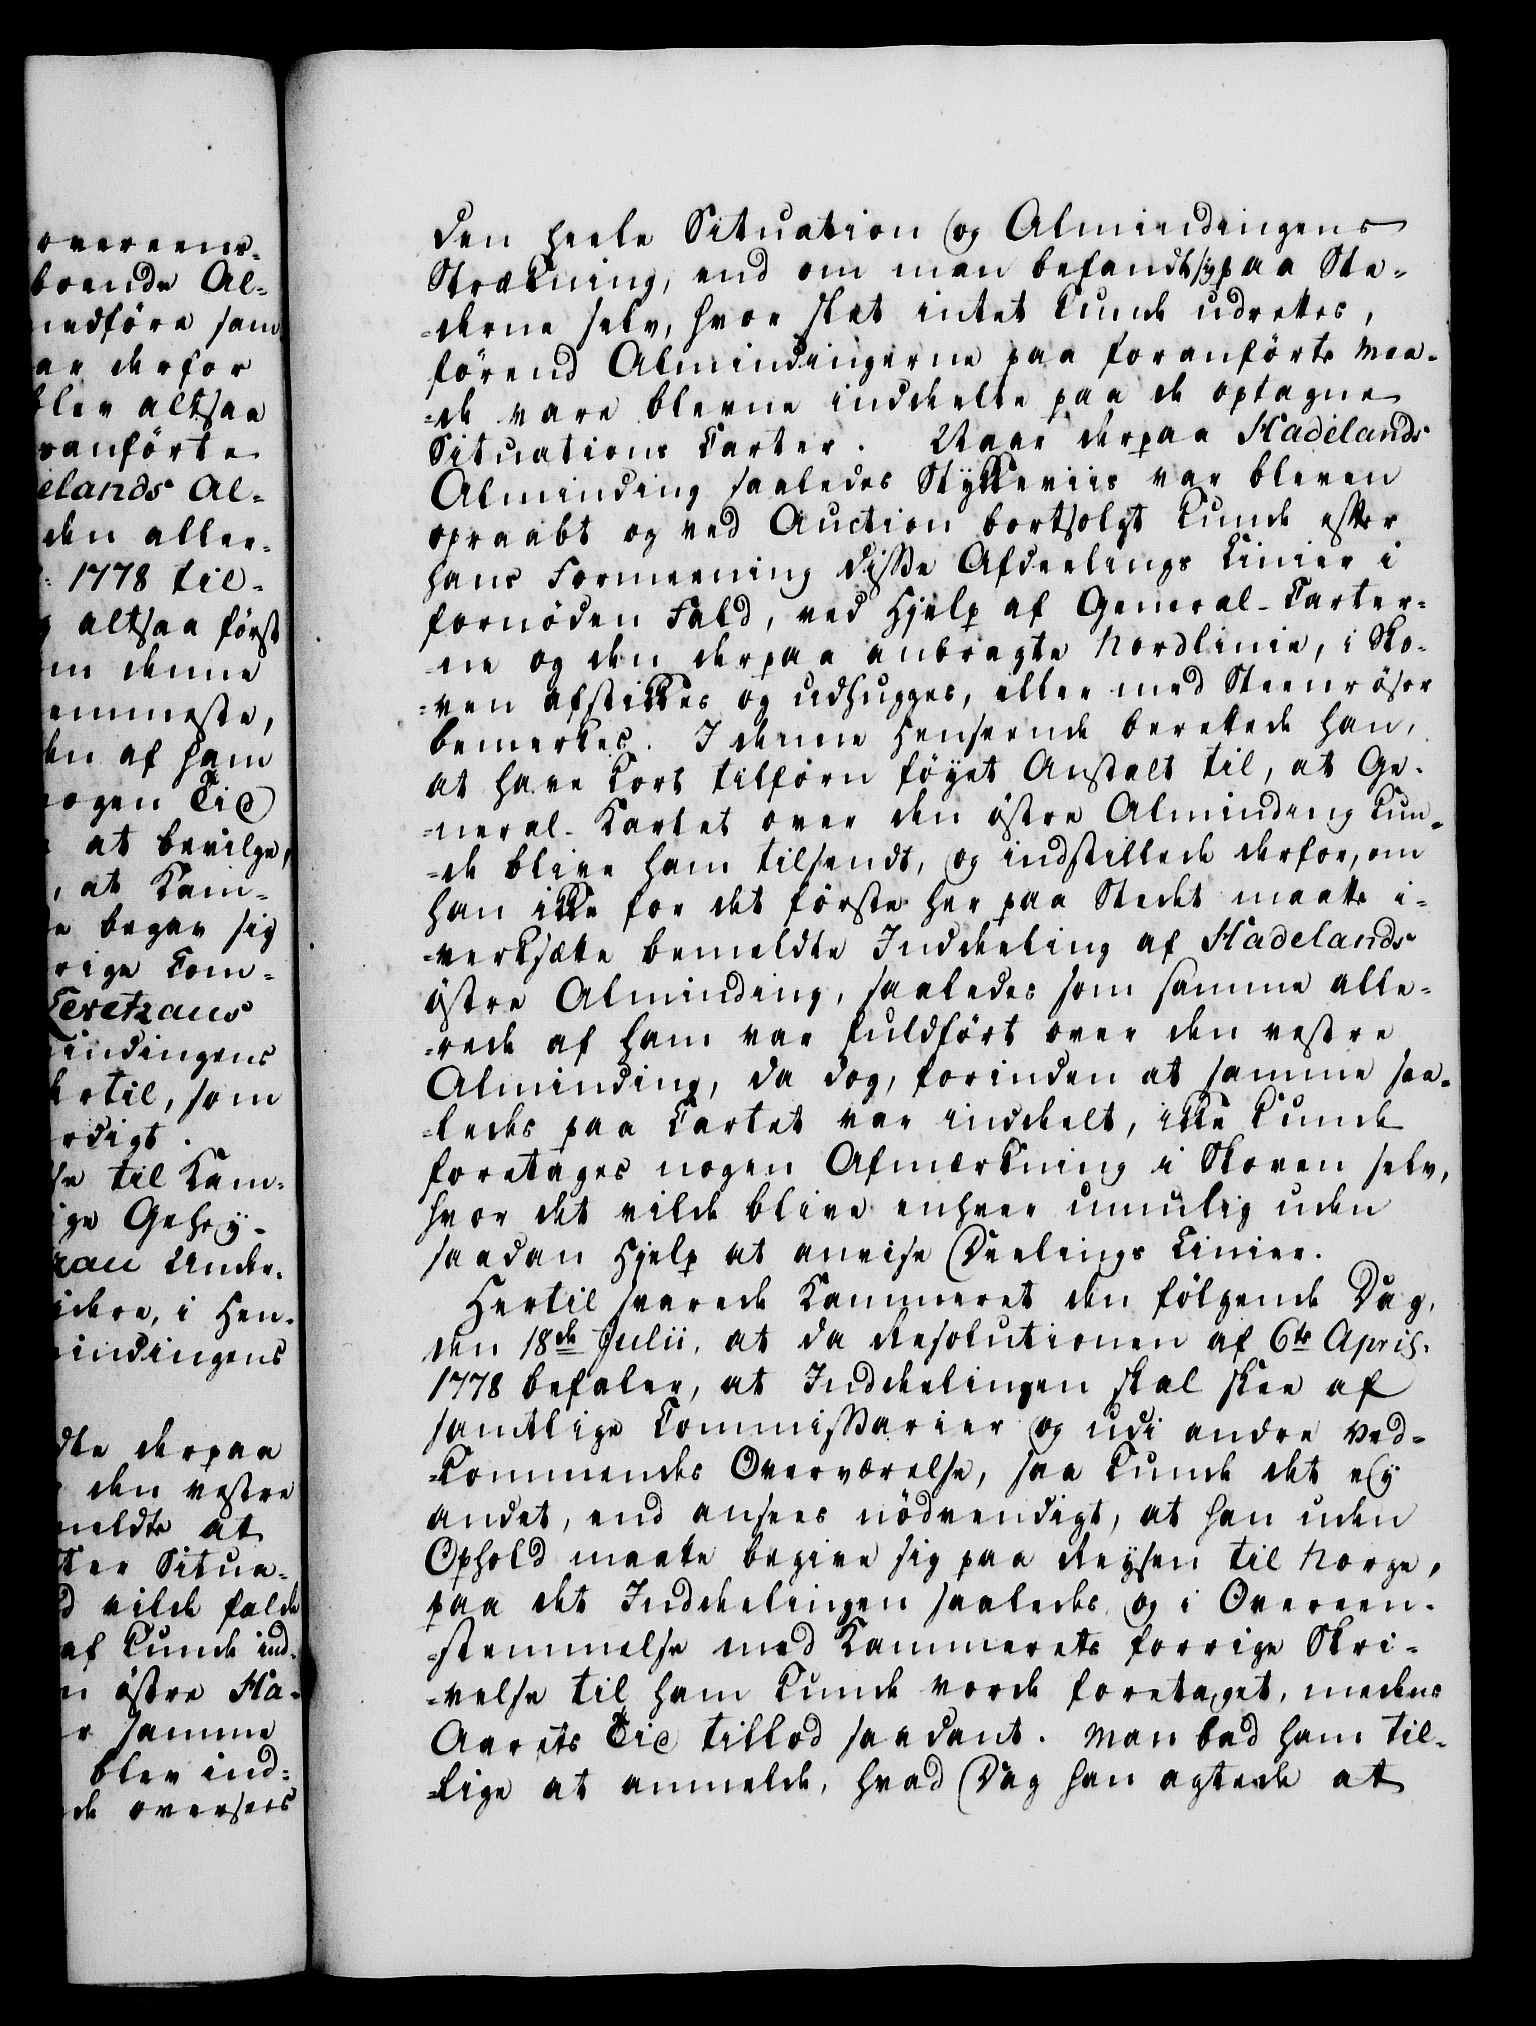 overeens-
troende Al-
medföre som
ar derfor
blev altsaa
ranförte
elands Al-
den aller-
1778 til-
altsaa först
m denne
emmeste,
den af ham
nogen Tid
at bevilge,
, at Kam-
begav sig
rige Com-
Geretzaus
mindingens
hertil, som
rdigt.
se til Kam-
ige Gehey-
zau Under-
idere, i Hen-
mindingens
dte derpaa
den vestre
meldte at
ter Situa-
d vilde falde
af kunde ind-
n östre Ha-
r samme
blev ind-
de oversees
den heele Situation og Almindingens
Strækning, end om man befandt sig paa Ste-
-derne selv, hvor slet intet kunde udrettes,
förend Almindingerne paa foranförte Maa-
-de vare blevne inddeelte paa de optagne
Situations Carter. Naar derpaa Hadelands
Alminding saaledes Stykkeviis var bleven
opraabt og ved Auction bortsolgt kunde efter
hans Formeening disse Afdeelings Linier i
fornöden Fald, ved Hjelp af General-Carter-
ne og den derpaa anbragte Nordlinie, i Sko-
-ven afstikkes og udhugges, eller med Steenröser
bemerkes. I denne Henseende berettede han,
at have kort tilforn föyet Anstalt til, at Ge-
-neral-Kartet over den östre Alminding kun-
-de blive ham tilsendt, og indstillede derfor, om
han ikke for det förste her paa Stedet maatte i-
-verksætte bemeldte Inddeeling af Hadelands
östre Alminding, saaledes som samme alle-
-rede af ham var fuldfört over den vestre
Alminding, da dog, forinden at samme saa-
-ledes paa Cartet var inddeelt, ikke kunde
foretages nogen Afmærkning i Skoven selv,
hvor det vilde blive enhver umulig uden
saadan Hjelp at anvise Deelings Linier.
Hertil svarede Kammeret den fölgende Dag,
den 18de Julii, at da Resolutionen af 6te April
1778 befaler, at Inddeelingen skal skee af
samtlige Commissarier og udi andre Ved-
-kommendes Overværelse, saa kunde det ey
andet, end ansees nödvendigt, at han uden
Ophold maatte begive sig paa Reysen til Norge,
paa det Inddeelingen saaledes og i Overeen-
-stemmelse med Kammerets forrige Skri-
-velse til ham kunde vorde foretaget, medens
Aarets Tid tillod saadant. Man bad ham til-
-lige at anmelde, hvad Dag han agtede at